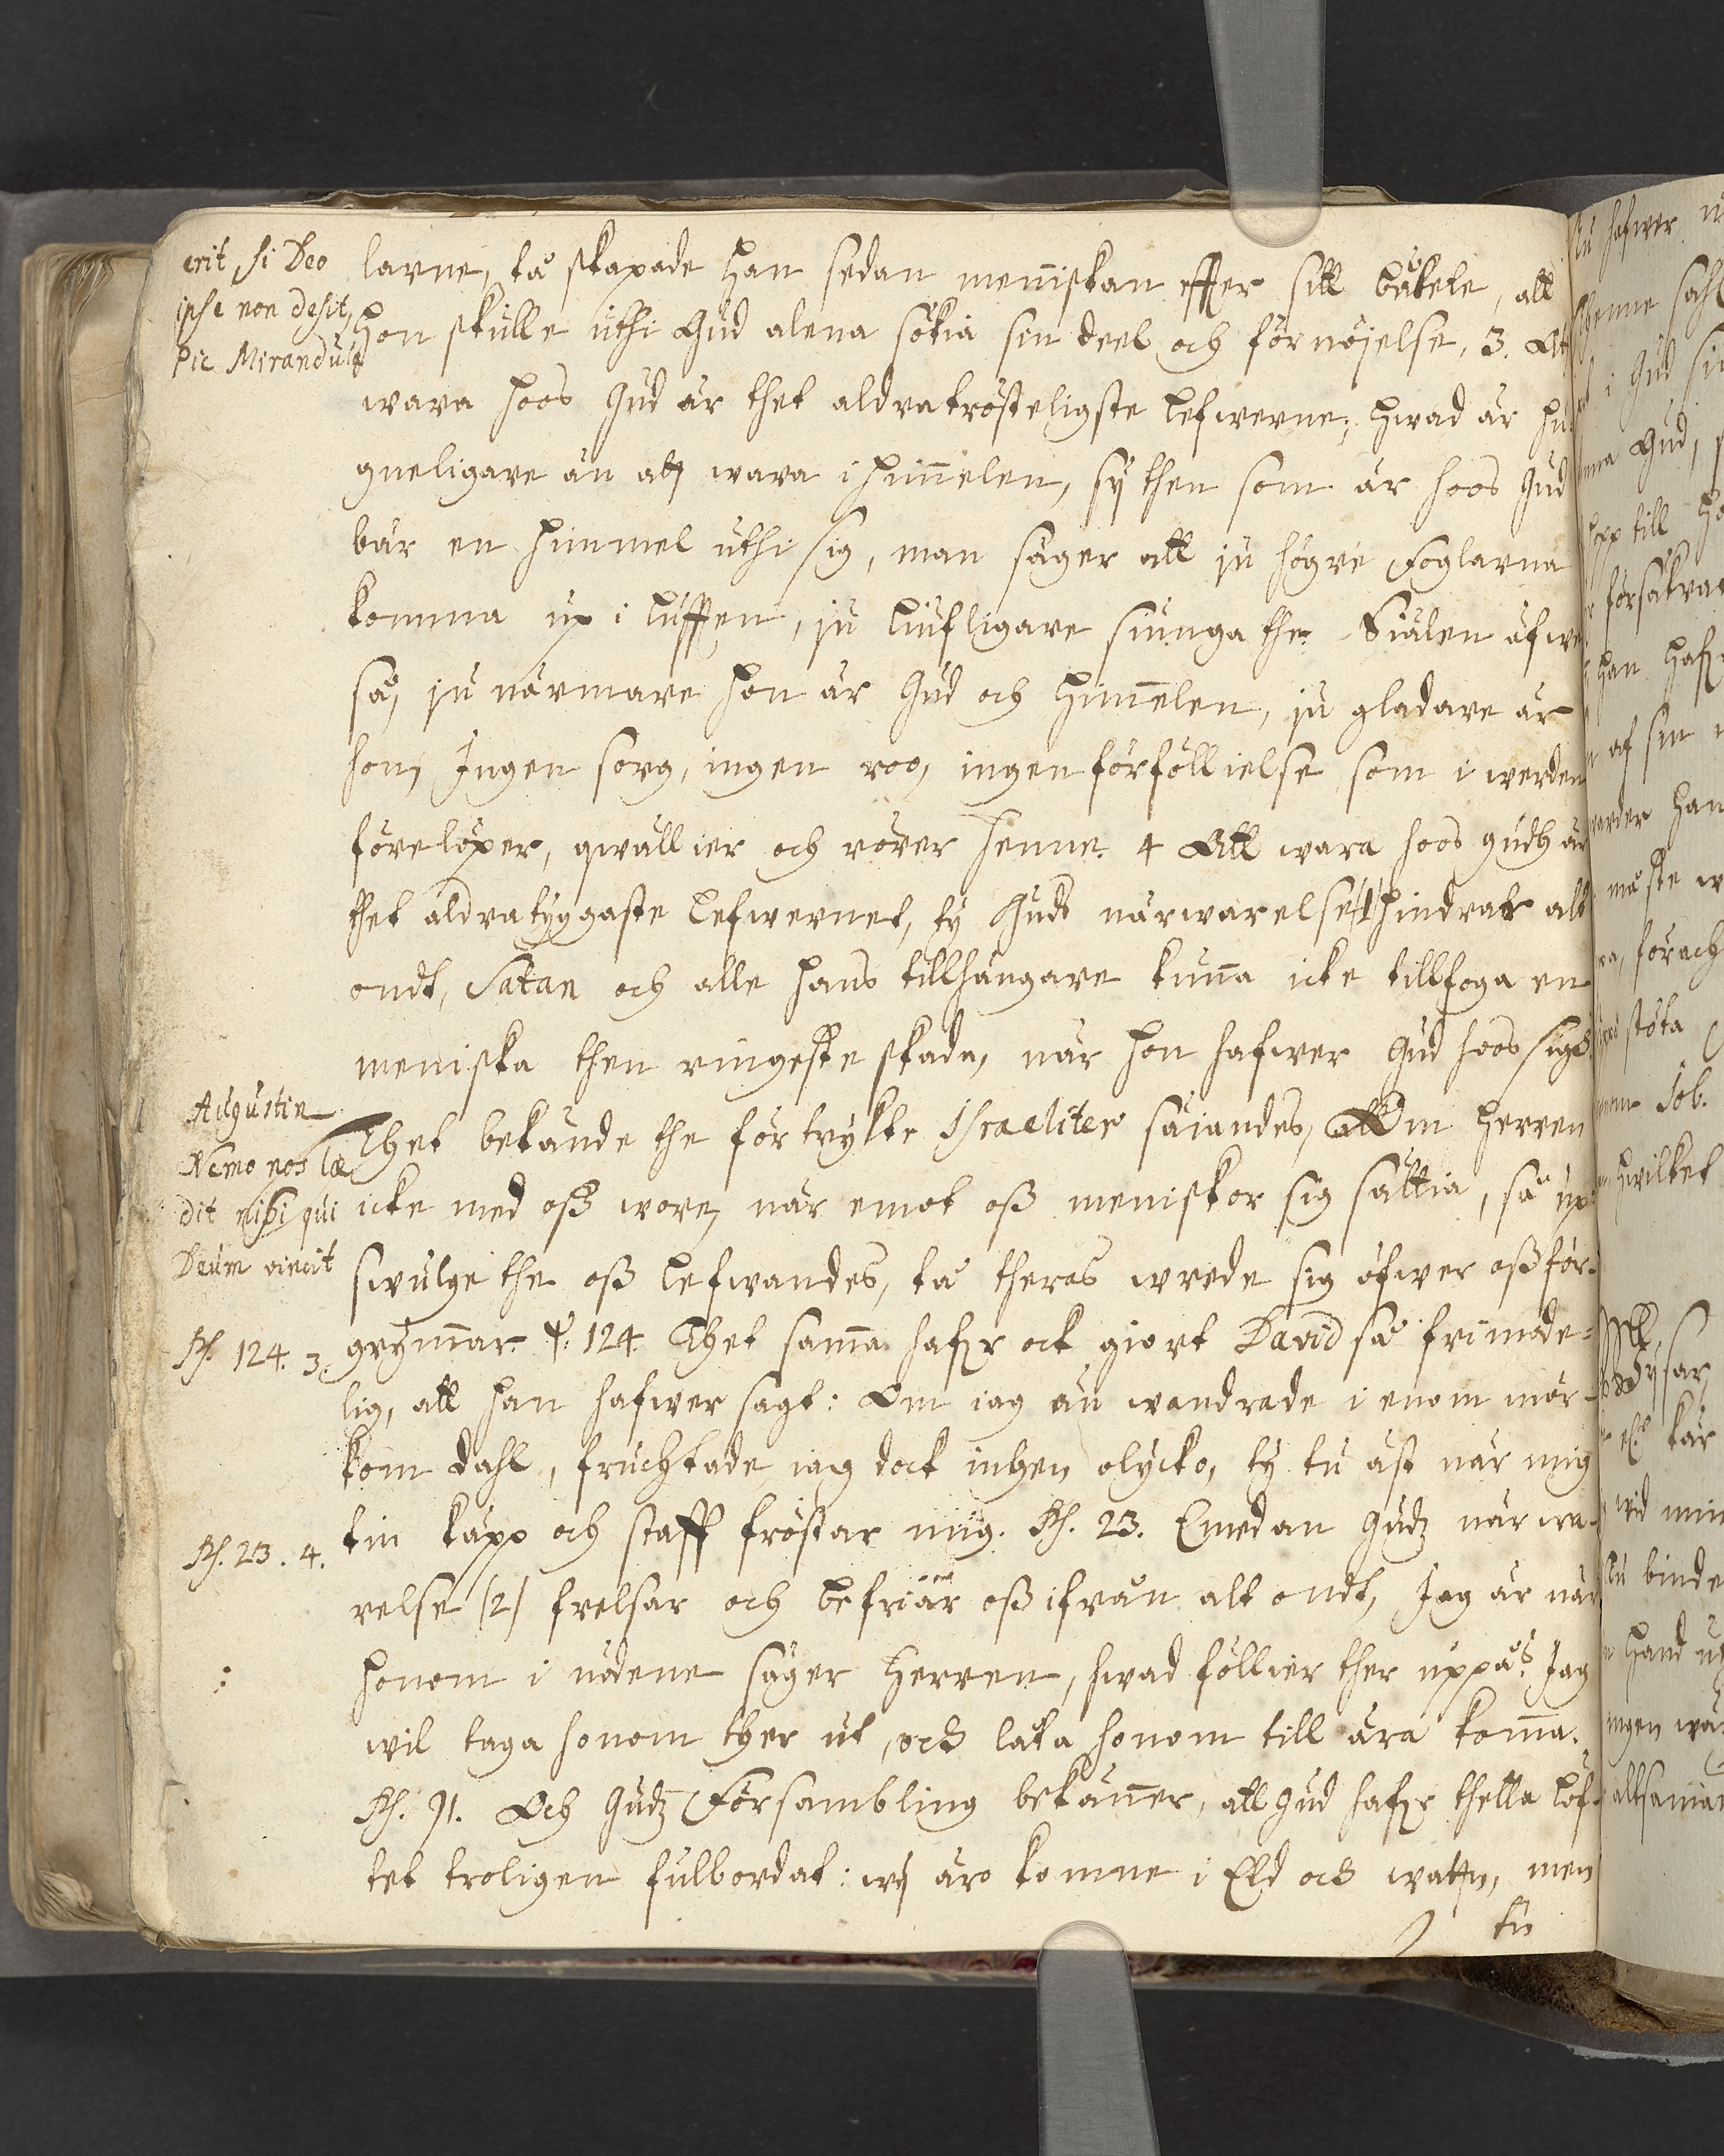 erit, si Deo
ipse non desit,
Pic Mirandula
larne, tå skapade han sedan menniskan effter sitt beläte, att
hon skulle uthi Gud alena sökia sin deel och förnöjelse, 3. At
wara hoos Gud är thet aldratrösteligste lefwerne; hwad är hu-
gneligare än att wara i himmelen, ty then som är hoos Gud
bär en himmel uthi sig, man säger att ju högre foglarna
komma up i lufften, ju liufligare siunga the. Siälen äfwe
så, ju närmare hon är Gud och himmelen, ju gladare är
hon, Ingen sorg, ingen roo, ingen förföllielse som i werden
förelöper, qwällier och rörer henne. 4 Att wara hoos gudh är
thet aldratryggaste lefwernet, ty Gudz närwarelse (1) hindrar alt
ondt, Satan och alle hans tillhängare kunna icke tillfoga en
meniska then ringeste skada, när hon hafwer Gud hoos sigh.
Augustin
Nemo nos læ
dit nisi qui
Deum vincit
Thet bekände the förtrykte Israeliter säiandes, Om Herren
icke med oss wore, när emot oss meniskor sig sättia, så up
swulge the oss lefwandes, tå theras wrede sig öfwer oss för-
Ps. 124. 3.
grymmar. ψ. 124 Thet samma hafr ock giort David så frimode-
lig, att han hafwer sagt: Om iag än wandrade i enom mör-
kom dahl, fruchtade iag dock ingen olycko, ty tu äst när mig
Ps. 23. 4.
tin käpp och staff tröstar mig. Ps. 23. Emedan Gudz närwa-
relse (2) frelsar och befriar oss ifrån alt ondt, Jag är när
honom i nödene säger Herren, hwad föllier ther uppå? Jag
wil taga honom ther ut, och låta honom till ära komma.
Ps. 91. Och Gudz Försambling bekänner, att Gud hafr thetta löf-
tet troligen fulbordat: wij äro komne i Eld och watten, men
tu